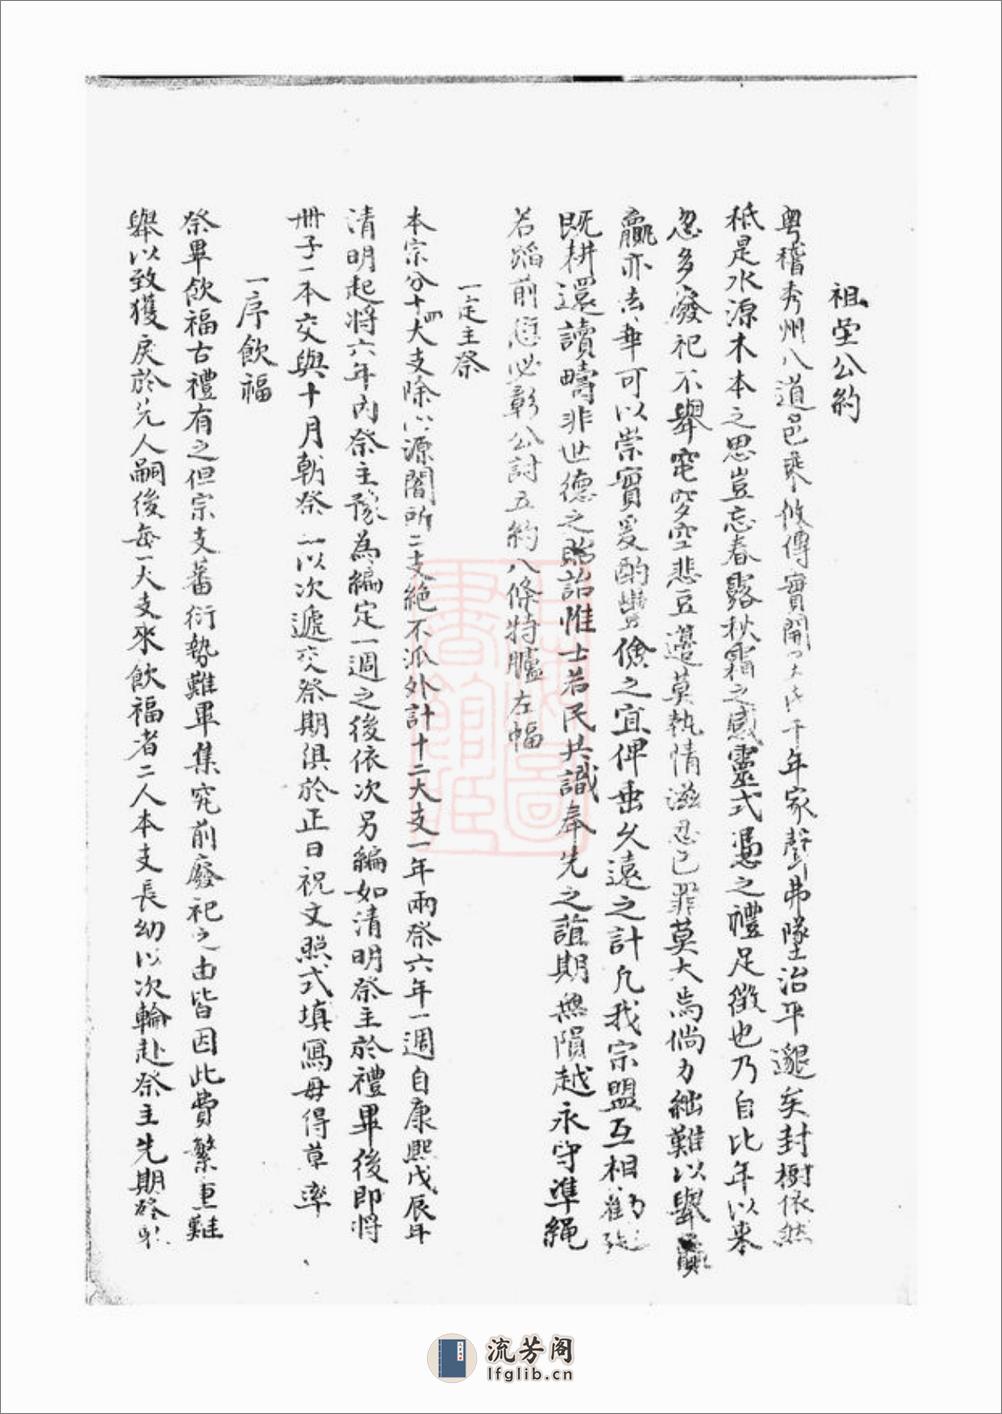 祖塋公約
粵稽秀州八道邑乘攸傳實開千年家聲弗墜治平邈矣封樹依然
秪是水源木本之思豈忘春露秋霜之感靈式憑之禮足徵也乃自比年以來
忽多廢祀不舉窀穸空悲豆籩莫執情滋忍已罪莫大焉倘力絀難以舉
贏亦去華可以崇實爰酌豐儉之宜俾垂久遠之計凡我宗盟互相
既耕還讀疇非世德之貽詒惟士若民共識奉先之誼期無隕越永守準繩
若蹈前愆必彰公討五約八條特臚左幅
一定主祭
本宗分十四大支除以源閣所二支絕不派外計十二大支一年兩祭六年一週自康熙戊辰年
清明起將六年內祭主豫為編定一週之後依次另編如清明祭主於禮畢後即將
冊子一本交與十月朝祭一以次遞交祭期俱於正日祝文照式填寫毋得草率
一序飲福
祭畢飲福古禮有之但宗支蕃衍勢難畢集究前廢祀之由皆因此費繁重難
舉以致獲戾於先人嗣後每一大支來飲福者二人本支長幼以次輪赴祭主先期
流芳阁
lfglib.cn